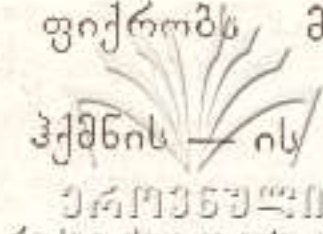 ფიქრობს მ
ჰქმნის — ის
ეროვნული